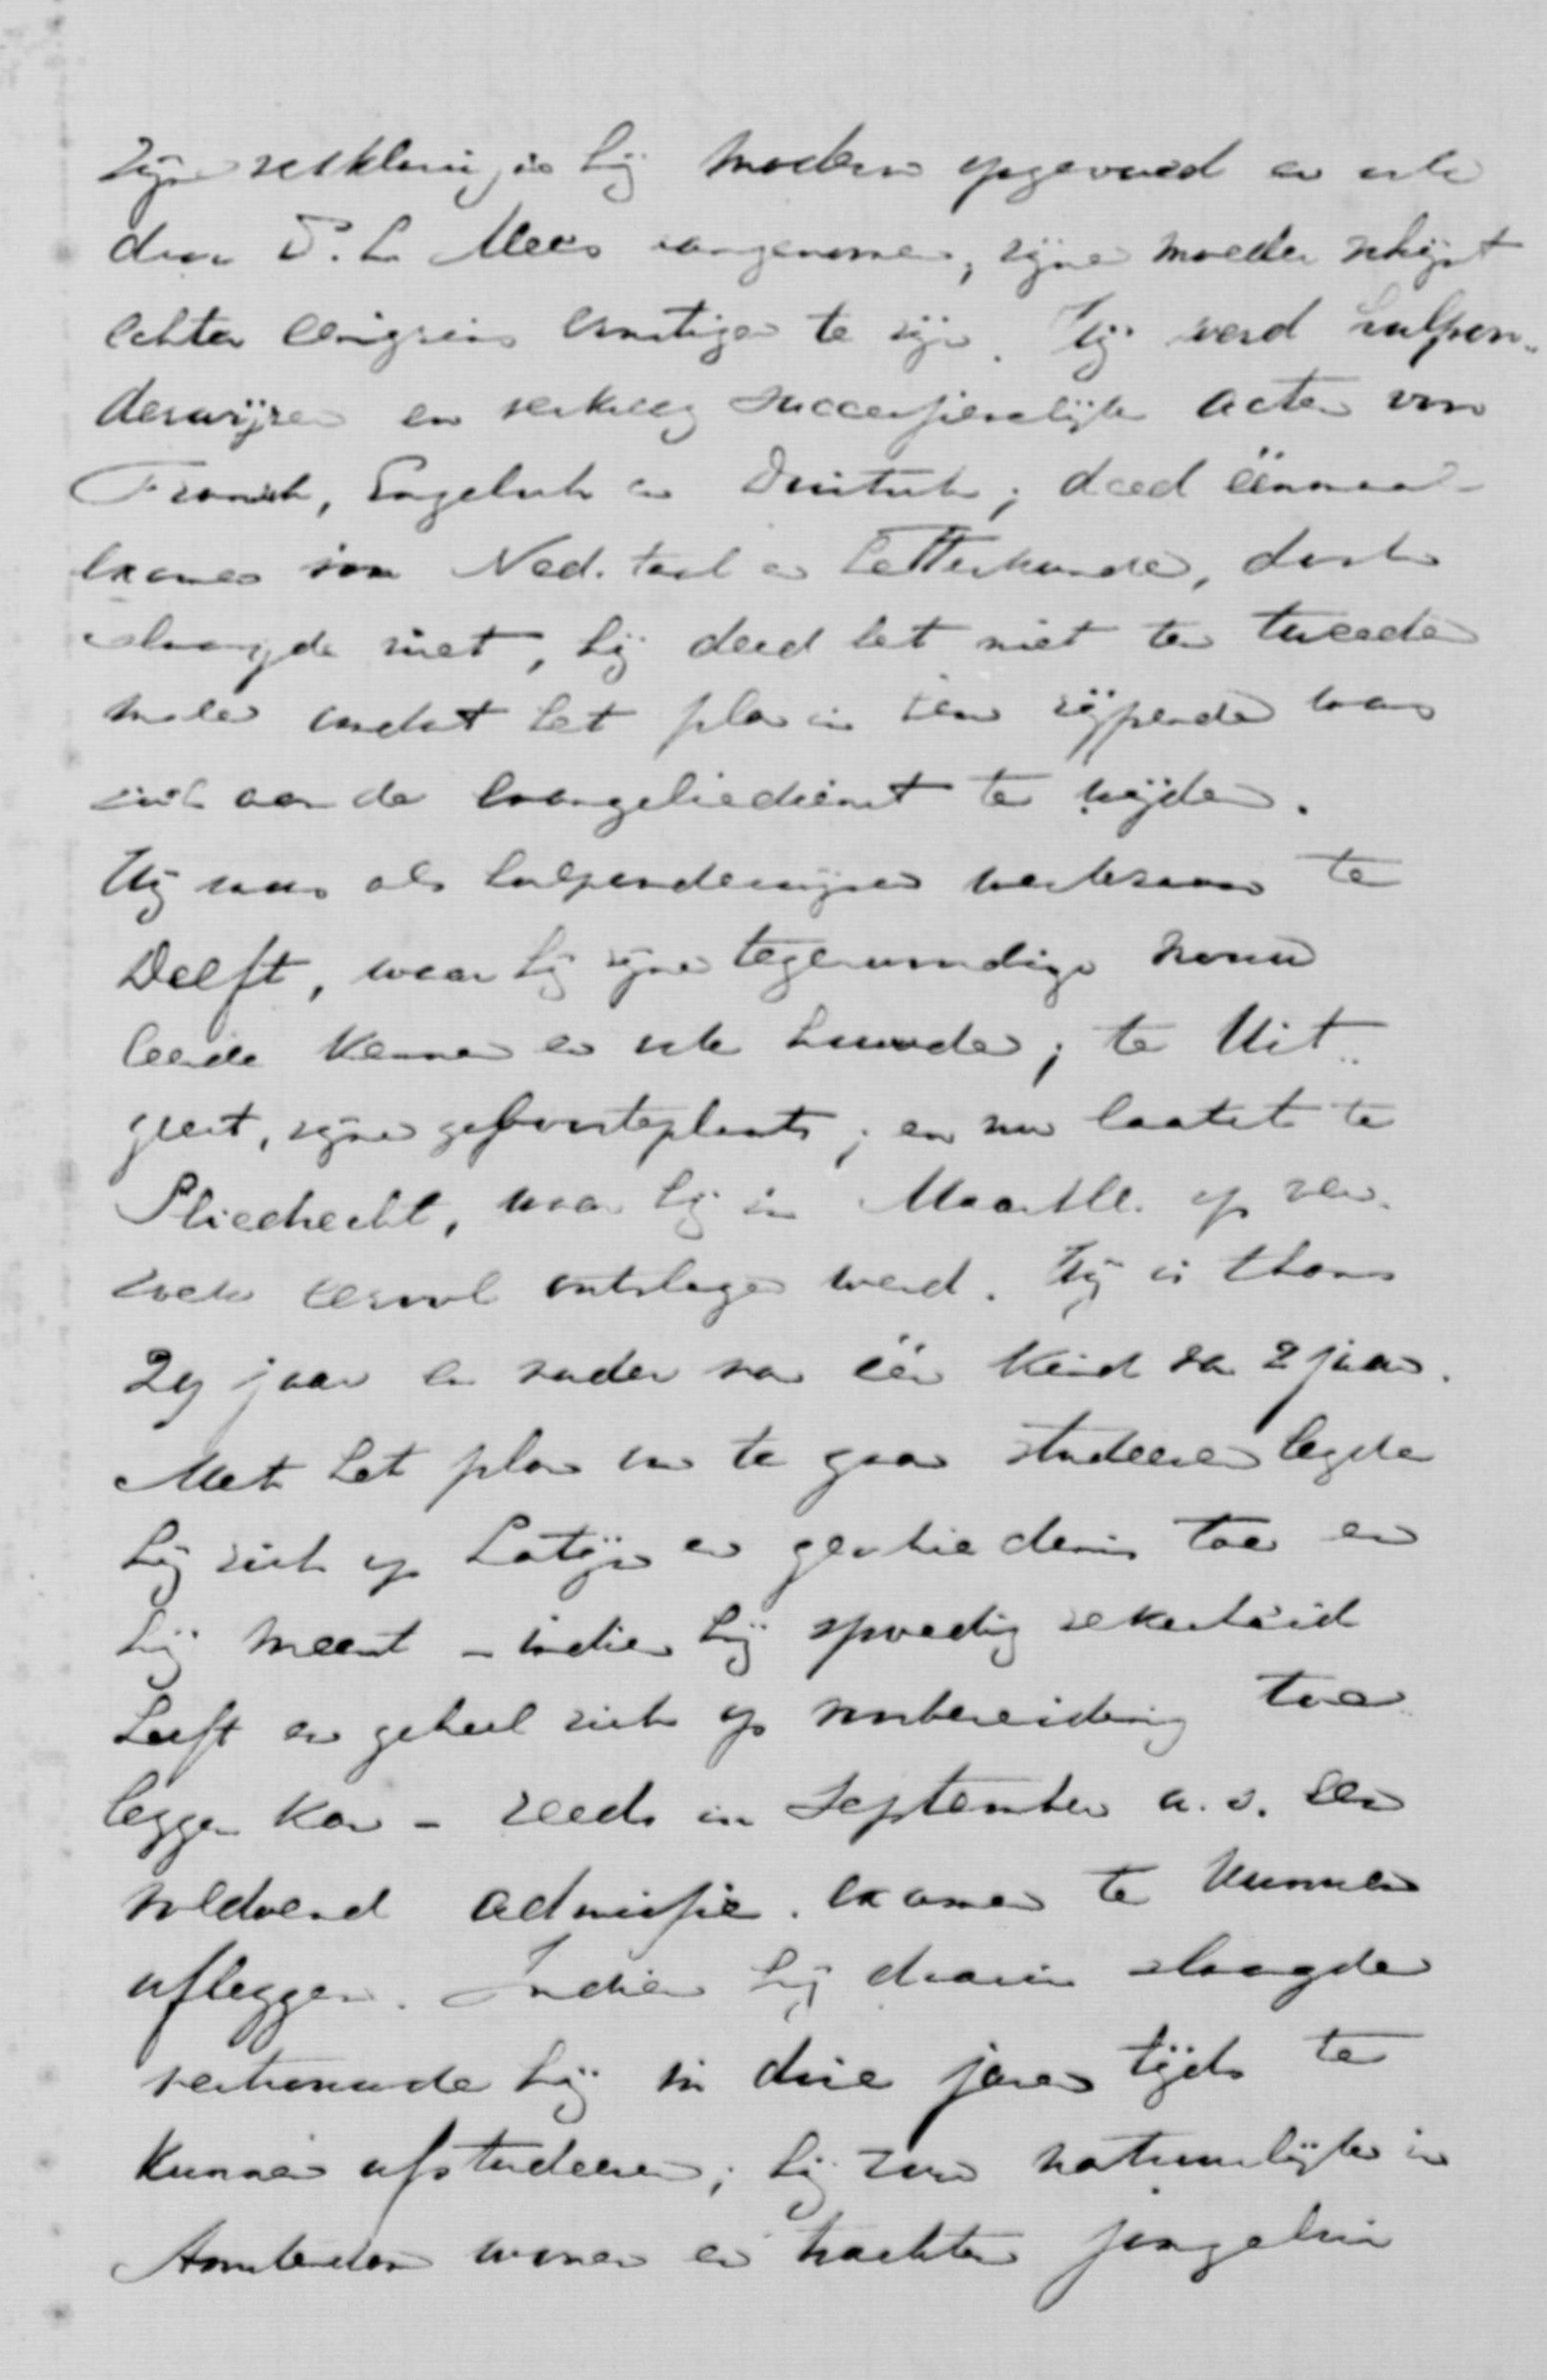 zijn verklaring is hij modern opgevoed en ook
door P. L. Mees aangenomen, zijne moeder schijnt
echter eenigzins ernstiger te zijn. Hij werd hulpon-
derwijzer en verkreeg successievelijk acten voor
Fransch, Engelsch en Duitsch; deed éénmaal
examen in Ned. taal en Letterkunde, doch
slaagde niet, hij deed het niet ten tweeden
male omdat het plan in hem rijpende was
zich aan de Evangeliedienst te wijden.
Hij was als hulponderwijzer werkzaam te
Delft, waar hij zijne tegenwoordige vrouw
leerde kennen en ook huwde; te Uit-
geest, zijne geboorteplaats; en nu laatst te
Sliedrecht, waar hij in Maart ll. op ver-
zoek eervol ontslagen werd. Hij is thans
29 jaar en vader van één kind van 2 jaar.
Met het plan om te gaan studeeren legde
hij zich op Latijn en geschiedenis toe en
hij meent - indien hij spoedig zekerheid
heeft en geheel zich op voorbereiding toe
leggen kan - reeds in September a.s. een
voldoend admissie-examen te kunnen
afleggen. Indien hij daarin slaagde
vertrouwde hij in drie jaren tijds te
kunnen afstudeeren; hij zou natuurlijk in
Amsterdam wonen en trachten jongelui